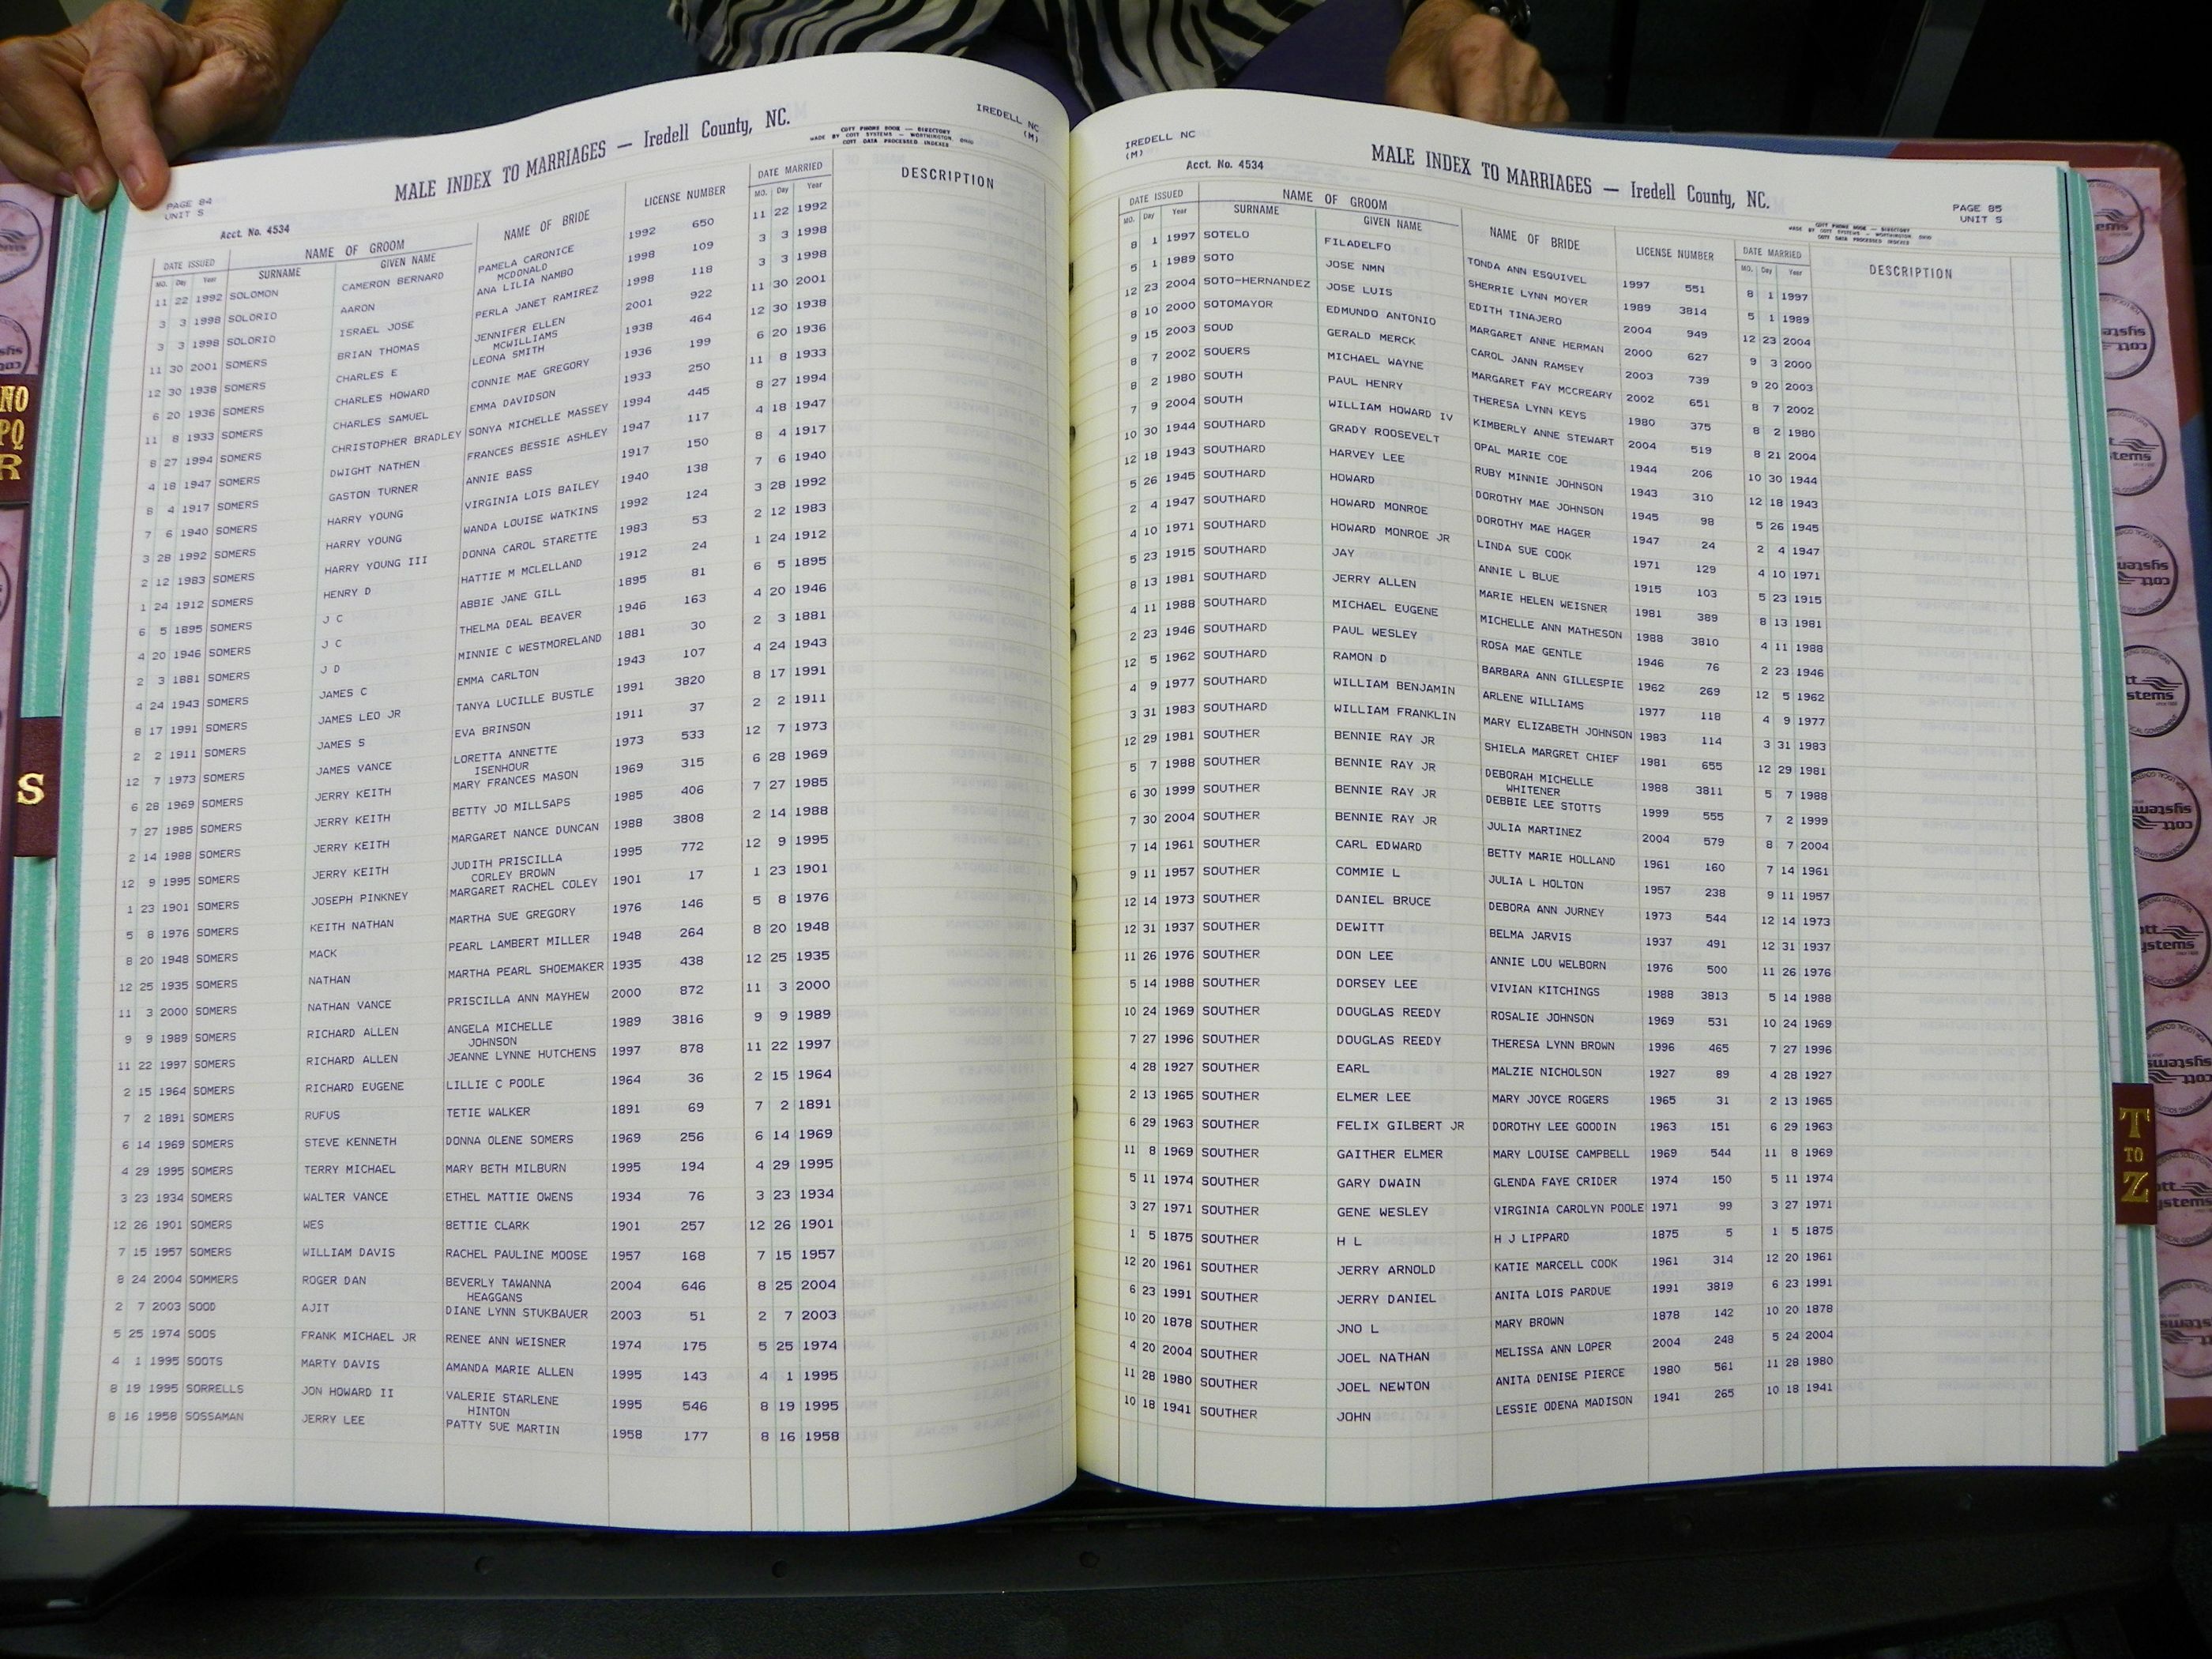 IREDELL NC
(M)
PAGE 84
UNIT S
MALE INDEX TO MARRIAGES — Iredell County, NC.
COTT PHONE BOOK — DIRECTORY
MADE BY COTT SYSTEMS — WORTHINGTON, OHIO
COTT DATA PROCESSED INDEXES
Acct. No. 4534
DATE ISSUED NAME OF GROOM NAME OF BRIDE LICENSE NUMBER DATE MARRIED DESCRIPTION
MO. Day Year SURNAME GIVEN NAME MO. Day Year
11 22 1992 SOLOMON CAMERON BERNARD PAMELA CARONICE 1992 650 11 22 1992
MCDONALD
3 3 1998 SOLORIO AARON ANA LILIA NAMBO 1998 109 3 3 1998
3 3 1998 SOLORIO ISRAEL JOSE PERLA JANET RAMIREZ 1998 118 3 3 1998
11 30 2001 SOMERS BRIAN THOMAS JENNIFER ELLEN 2001 922 11 30 2001
MCWILLIAMS
12 30 1938 SOMERS CHARLES E LEONA SMITH 1938 464 12 30 1938
6 20 1936 SOMERS CHARLES HOWARD CONNIE MAE GREGORY 1936 199 6 20 1936
11 8 1933 SOMERS CHARLES SAMUEL EMMA DAVIDSON 1933 250 11 8 1933
8 27 1994 SOMERS CHRISTOPHER BRADLEY SONYA MICHELLE MASSEY 1994 445 8 27 1994
4 18 1947 SOMERS DWIGHT NATHEN FRANCES BESSIE ASHLEY 1947 117 4 18 1947
8 4 1917 SOMERS GASTON TURNER ANNIE BASS 1917 150 8 4 1917
7 6 1940 SOMERS HARRY YOUNG VIRGINIA LOIS BAILEY 1940 138 7 6 1940
3 28 1992 SOMERS HARRY YOUNG WANDA LOUISE WATKINS 1992 124 3 28 1992
2 12 1983 SOMERS HARRY YOUNG III DONNA CAROL STARETTE 1983 53 2 12 1983
1 24 1912 SOMERS HENRY D HATTIE M MCLELLAND 1912 24 1 24 1912
6 5 1895 SOMERS J C ABBIE JANE GILL 1895 81 6 5 1895
4 20 1946 SOMERS J C THELMA DEAL BEAVER 1946 163 4 20 1946
2 3 1881 SOMERS J D MINNIE C WESTMORELAND 1881 30 2 3 1881
4 24 1943 SOMERS JAMES C EMMA CARLTON 1943 107 4 24 1943
8 17 1991 SOMERS JAMES LEO JR TANYA LUCILLE BUSTLE 1991 3820 8 17 1991
2 2 1911 SOMERS JAMES S EVA BRINSON 1911 37 2 2 1911
12 7 1973 SOMERS JAMES VANCE LORETTA ANNETTE 1973 533 12 7 1973
ISENHOUR
6 28 1969 SOMERS JERRY KEITH MARY FRANCES MASON 1969 315 6 28 1969
7 27 1985 SOMERS JERRY KEITH BETTY JO MILLSAPS 1985 406 7 27 1985
2 14 1988 SOMERS JERRY KEITH MARGARET NANCE DUNCAN 1988 3808 2 14 1988
12 9 1995 SOMERS JERRY KEITH JUDITH PRISCILLA 1995 772 12 9 1995
CORLEY BROWN
1 23 1901 SOMERS JOSEPH PINKNEY MARGARET RACHEL COLEY 1901 17 1 23 1901
5 8 1976 SOMERS KEITH NATHAN MARTHA SUE GREGORY 1976 146 5 8 1976
8 20 1948 SOMERS MACK PEARL LAMBERT MILLER 1948 264 8 20 1948
12 25 1935 SOMERS NATHAN MARTHA PEARL SHOEMAKER 1935 438 12 25 1935
11 3 2000 SOMERS NATHAN VANCE PRISCILLA ANN MAYHEW 2000 872 11 3 2000
9 9 1989 SOMERS RICHARD ALLEN ANGELA MICHELLE 1989 3816 9 9 1989
JOHNSON
11 22 1997 SOMERS RICHARD ALLEN JEANNE LYNNE HUTCHENS 1997 878 11 22 1997
2 15 1964 SOMERS RICHARD EUGENE LILLIE C POOLE 1964 36 2 15 1964
7 2 1891 SOMERS RUFUS TETIE WALKER 1891 69 7 2 1891
6 14 1969 SOMERS STEVE KENNETH DONNA OLENE SOMERS 1969 256 6 14 1969
4 29 1995 SOMERS TERRY MICHAEL MARY BETH MILBURN 1995 194 4 29 1995
3 23 1934 SOMERS WALTER VANCE ETHEL MATTIE OWENS 1934 76 3 23 1934
12 26 1901 SOMERS WES BETTIE CLARK 1901 257 12 26 1901
7 15 1957 SOMERS WILLIAM DAVIS RACHEL PAULINE MOOSE 1957 168 7 15 1957
8 24 2004 SOMMERS ROGER DAN BEVERLY TAWANNA 2004 646 8 25 2004
HEAGGANS
2 7 2003 SOOD AJIT DIANE LYNN STUKBAUER 2003 51 2 7 2003
5 25 1974 SOOS FRANK MICHAEL JR RENEE ANN WEISNER 1974 175 5 25 1974
4 1 1995 SOOTS MARTY DAVIS AMANDA MARIE ALLEN 1995 143 4 1 1995
8 19 1995 SORRELLS JON HOWARD II VALERIE STARLENE 1995 546 8 19 1995
HINTON
8 16 1958 SOSSAMAN JERRY LEE PATTY SUE MARTIN 1958 177 8 16 1958
IREDELL NC
(M)
Acct. No. 4534
MALE INDEX TO MARRIAGES — Iredell County, NC.
PAGE 85
UNIT S
COTT PHONE BOOK — DIRECTORY
MADE BY COTT SYSTEMS — WORTHINGTON, OHIO
COTT DATA PROCESSED INDEXES
DATE ISSUED NAME OF GROOM NAME OF BRIDE LICENSE NUMBER DATE MARRIED DESCRIPTION
MO. Day Year SURNAME GIVEN NAME MO. Day Year
8 1 1997 SOTELO FILADELFO TONDA ANN ESQUIVEL 1997 551 8 1 1997
5 1 1989 SOTO JOSE NMN SHERRIE LYNN MOYER 1989 3814 5 1 1989
12 23 2004 SOTO-HERNANDEZ JOSE LUIS EDITH TINAJERO 2004 949 12 23 2004
8 10 2000 SOTOMAYOR EDMUNDO ANTONIO MARGARET ANNE HERMAN 2000 627 9 3 2000
9 15 2003 SOUD GERALD MERCK CAROL JANN RAMSEY 2003 739 9 20 2003
8 7 2002 SOUERS MICHAEL WAYNE MARGARET FAY MCCREARY 2002 651 8 7 2002
8 2 1980 SOUTH PAUL HENRY THERESA LYNN KEYS 1980 375 8 2 1980
7 9 2004 SOUTH WILLIAM HOWARD IV KIMBERLY ANNE STEWART 2004 519 8 21 2004
10 30 1944 SOUTHARD GRADY ROOSEVELT OPAL MARIE COE 1944 206 10 30 1944
12 18 1943 SOUTHARD HARVEY LEE RUBY MINNIE JOHNSON 1943 310 12 18 1943
5 26 1945 SOUTHARD HOWARD DOROTHY MAE JOHNSON 1945 98 5 26 1945
2 4 1947 SOUTHARD HOWARD MONROE DOROTHY MAE HAGER 1947 24 2 4 1947
4 10 1971 SOUTHARD HOWARD MONROE JR LINDA SUE COOK 1971 129 4 10 1971
5 23 1915 SOUTHARD JAY ANNIE L BLUE 1915 103 5 23 1915
8 13 1981 SOUTHARD JERRY ALLEN MARIE HELEN WEISNER 1981 389 8 13 1981
4 11 1988 SOUTHARD MICHAEL EUGENE MICHELLE ANN MATHESON 1988 3810 4 11 1988
2 23 1946 SOUTHARD PAUL WESLEY ROSA MAE GENTLE 1946 76 2 23 1946
12 5 1962 SOUTHARD RAMON D BARBARA ANN GILLESPIE 1962 269 12 5 1962
4 9 1977 SOUTHARD WILLIAM BENJAMIN ARLENE WILLIAMS 1977 118 4 9 1977
3 31 1983 SOUTHARD WILLIAM FRANKLIN MARY ELIZABETH JOHNSON 1983 114 3 31 1983
12 29 1981 SOUTHER BENNIE RAY JR SHIELA MARGRET CHIEF 1981 655 12 29 1981
5 7 1988 SOUTHER BENNIE RAY JR DEBORAH MICHELLE 1988 3811 5 7 1988
WHITENER
6 30 1999 SOUTHER BENNIE RAY JR DEBBIE LEE STOTTS 1999 555 7 2 1999
7 30 2004 SOUTHER BENNIE RAY JR JULIA MARTINEZ 2004 579 8 7 2004
7 14 1961 SOUTHER CARL EDWARD BETTY MARIE HOLLAND 1961 160 7 14 1961
9 11 1957 SOUTHER COMMIE L JULIA L HOLTON 1957 238 9 11 1957
12 14 1973 SOUTHER DANIEL BRUCE DEBORA ANN JURNEY 1973 544 12 14 1973
12 31 1937 SOUTHER DEWITT BELMA JARVIS 1937 491 12 31 1937
11 26 1976 SOUTHER DON LEE ANNIE LOU WELBORN 1976 500 11 26 1976
5 14 1988 SOUTHER DORSEY LEE VIVIAN KITCHINGS 1988 3813 5 14 1988
10 24 1969 SOUTHER DOUGLAS REEDY ROSALIE JOHNSON 1969 531 10 24 1969
7 27 1996 SOUTHER DOUGLAS REEDY THERESA LYNN BROWN 1996 465 7 27 1996
4 28 1927 SOUTHER EARL MALZIE NICHOLSON 1927 89 4 28 1927
2 13 1965 SOUTHER ELMER LEE MARY JOYCE ROGERS 1965 31 2 13 1965
6 29 1963 SOUTHER FELIX GILBERT JR DOROTHY LEE GOODIN 1963 151 6 29 1963
11 8 1969 SOUTHER GAITHER ELMER MARY LOUISE CAMPBELL 1969 544 11 8 1969
5 11 1974 SOUTHER GARY DWAIN GLENDA FAYE CRIDER 1974 150 5 11 1974
3 27 1971 SOUTHER GENE WESLEY VIRGINIA CAROLYN POOLE 1971 99 3 27 1971
1 5 1875 SOUTHER H L H J LIPPARD 1875 5 1 5 1875
12 20 1961 SOUTHER JERRY ARNOLD KATIE MARCELL COOK 1961 314 12 20 1961
6 23 1991 SOUTHER JERRY DANIEL ANITA LOIS PARDUE 1991 3819 6 23 1991
10 20 1878 SOUTHER JNO L MARY BROWN 1878 142 10 20 1878
4 20 2004 SOUTHER JOEL NATHAN MELISSA ANN LOPER 2004 248 5 24 2004
11 28 1980 SOUTHER JOEL NEWTON ANITA DENISE PIERCE 1980 561 11 28 1980
10 18 1941 SOUTHER JOHN LESSIE ODENA MADISON 1941 265 10 18 1941
NO
PQ
R
S
T
TO
Z
cott
systems